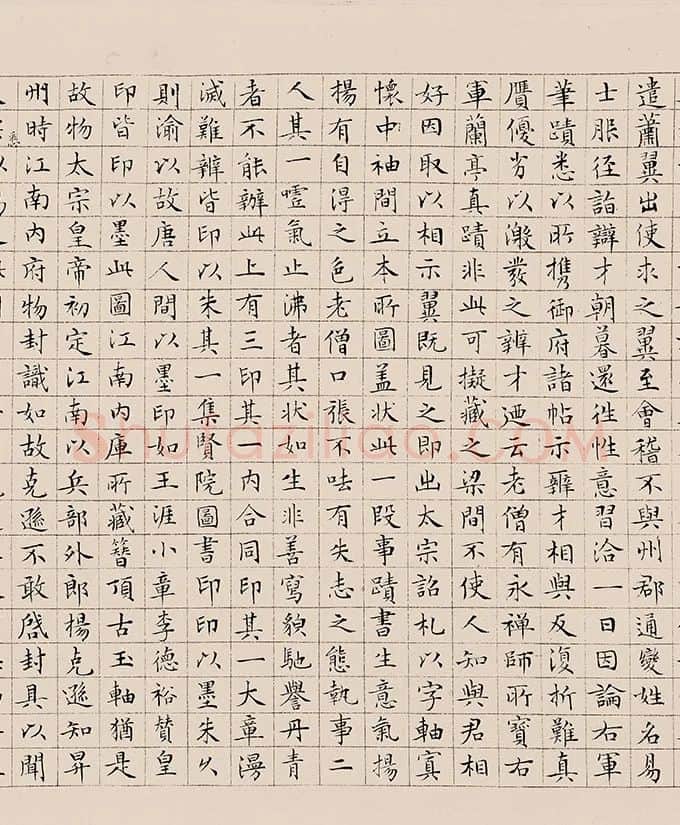 遣蕭翼出使求之翼至會稽不與州郡通變姓名易
士服徑詣辯才朝暮還徃性意習洽一日因論右軍
筆蹟悉以所攜御府諸帖示辯才相與反復折難真
贋優劣以激發之辨才廼云老僧有永禪師所寶右
軍蘭亭真蹟非此可擬藏之梁間不使人知與君相
好因取以相示翼既見之即出太宗詔札以字軸寘
懷中袖間立本所圖盖状此一段事蹟書生意氣揚
揚有自得之色老僧口張不呿有失志之態執事二
人其一噎氣止沸者其状如生非善寫貌馳譽丹青
者不能辦此上有三印其一内合同印其一大章漫
滅難辨皆印以朱其一集賢院圖書印印以墨朱以
則渝以故唐人間以墨印如王涯小章李德裕贊皇
印皆印以墨此圖江南内庫所藏簪頂古玉軸猶是
故物太宗皇帝初定江南以兵部外郎楊克遜知昇
州時江南内府物封識如故克遜不敢啓封具以聞
Shufaziliao.COM